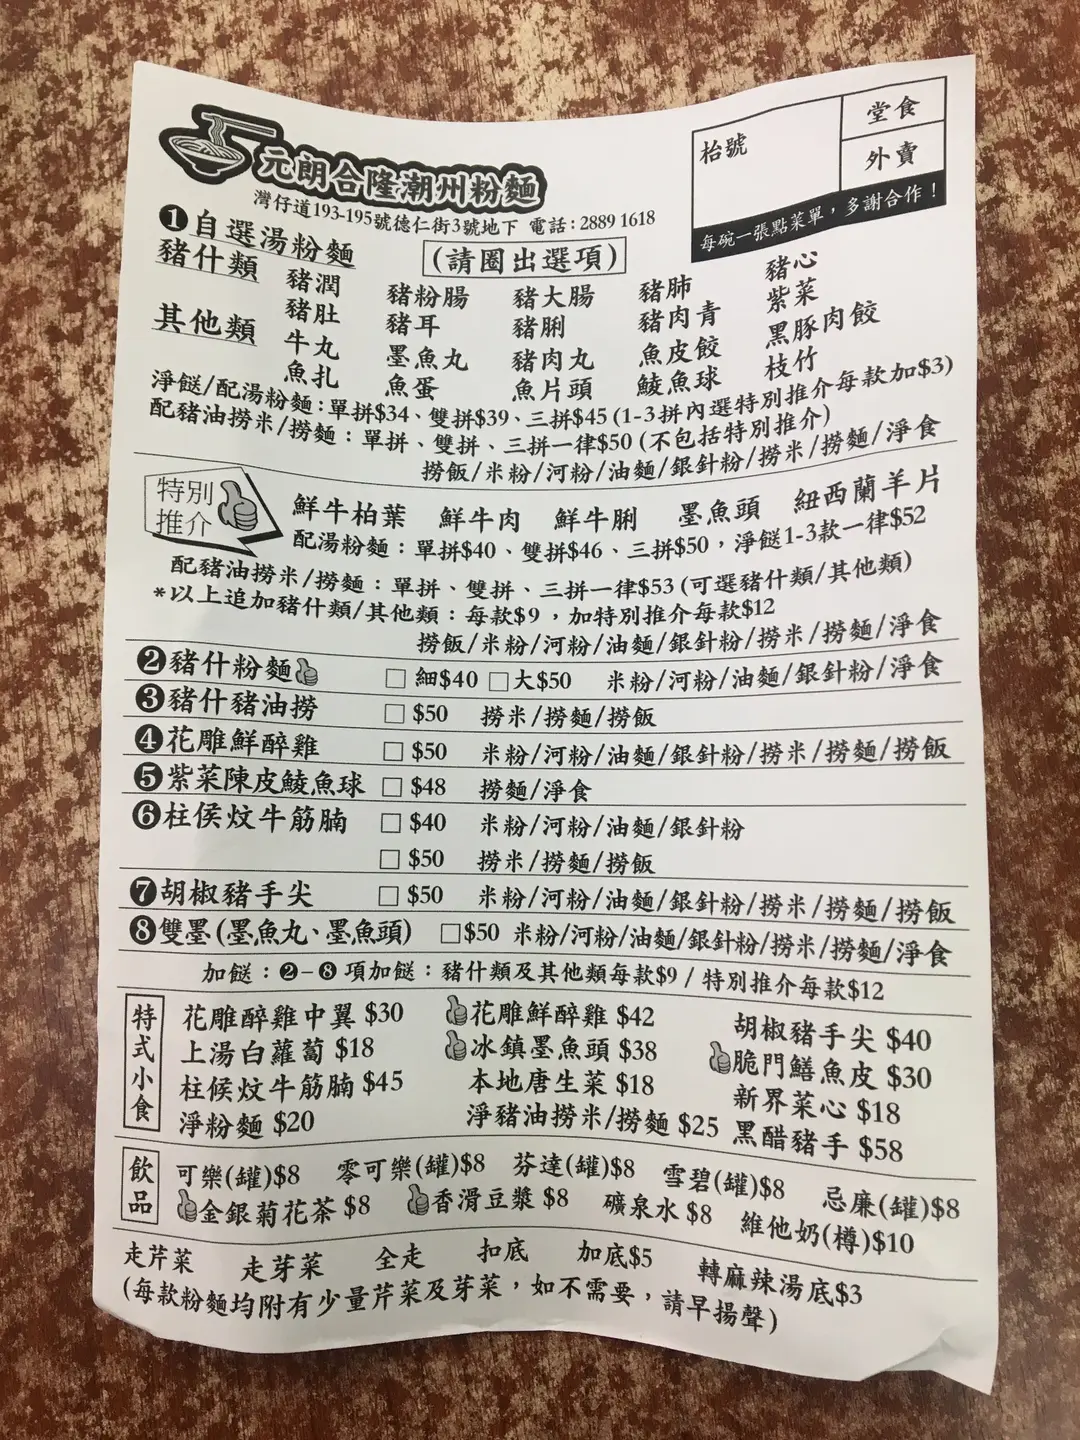 元朗合隆潮州粉麵
灣仔道193-195號德仁街3號地下 電話:2889 1618
枱號
堂食
外賣
每碗一張點菜單,多謝合作!
❶自選湯粉麵 (請圈出選項)
豬什類 豬潤 豬粉腸 豬大腸 豬肺 豬心
豬肚 豬耳 豬脷 豬肉青 紫菜
其他類 牛丸 墨魚丸 豬肉丸 魚皮餃 黑豚肉餃
魚扎 魚蛋 魚片頭 鯪魚球 枝竹
淨餸/配湯粉麵:單拼$34、雙拼$39、三拼$45(1-3拼內選特別推介每款加$3)
配豬油撈米/撈麵:單拼、雙拼、三拼一律$50(不包括特別推介)
撈飯/米粉/河粉/油麵/銀針粉/撈米/撈麵/淨食
特別推介 鮮牛柏葉 鮮牛肉 鮮牛脷 墨魚頭 紐西蘭羊片
配湯粉麵:單拼$40、雙拼$46、三拼$50,淨餸1-3款一律$52
配豬油撈米/撈麵:單拼、雙拼、三拼一律$53(可選豬什類/其他類)
*以上追加豬什類/其他類:每款$9,加特別推介每款$12
撈飯/米粉/河粉/油麵/銀針粉/撈米/撈麵/淨食
❷豬什粉麵 □細$40 □大$50 米粉/河粉/油麵/銀針粉/淨食
❸豬什豬油撈 □$50 撈米/撈麵/撈飯
❹花雕鮮醉雞 □$50 米粉/河粉/油麵/銀針粉/撈米/撈麵/撈飯
❺紫菜陳皮鯪魚球 □$48 撈麵/淨食
❻柱侯炆牛筋腩 □$40 米粉/河粉/油麵/銀針粉
□$50 撈米/撈麵/撈飯
❼胡椒豬手尖 □$50 米粉/河粉/油麵/銀針粉/撈米/撈麵/撈飯
❽雙墨(墨魚丸、墨魚頭) □$50 米粉/河粉/油麵/銀針粉/撈米/撈麵/淨食
加餸:❷-❽項加餸:豬什類及其他類每款$9/特別推介每款$12
特式小食
花雕醉雞中翼 $30 花雕鮮醉雞 $42 胡椒豬手尖 $40
上湯白蘿蔔 $18 冰鎮墨魚頭 $38 脆門鱔魚皮 $30
柱候炆牛筋腩 $45 本地唐生菜 $18 新界菜心 $18
淨粉麵 $20 淨豬油撈米/撈麵 $25 黑醋豬手 $58
飲品
可樂(罐)$8 零可樂(罐)$8 芬達(罐)$8 雪碧(罐)$8 忌廉(罐)$8
金銀菊花茶 $8 香滑豆漿 $8 礦泉水 $8 維他奶(樽)$10
走芹菜 走芽菜 全走 扣底 加底$5 轉麻辣湯底$3
(每款粉麵均附有少量芹菜及芽菜,如不需要,請早揚聲)